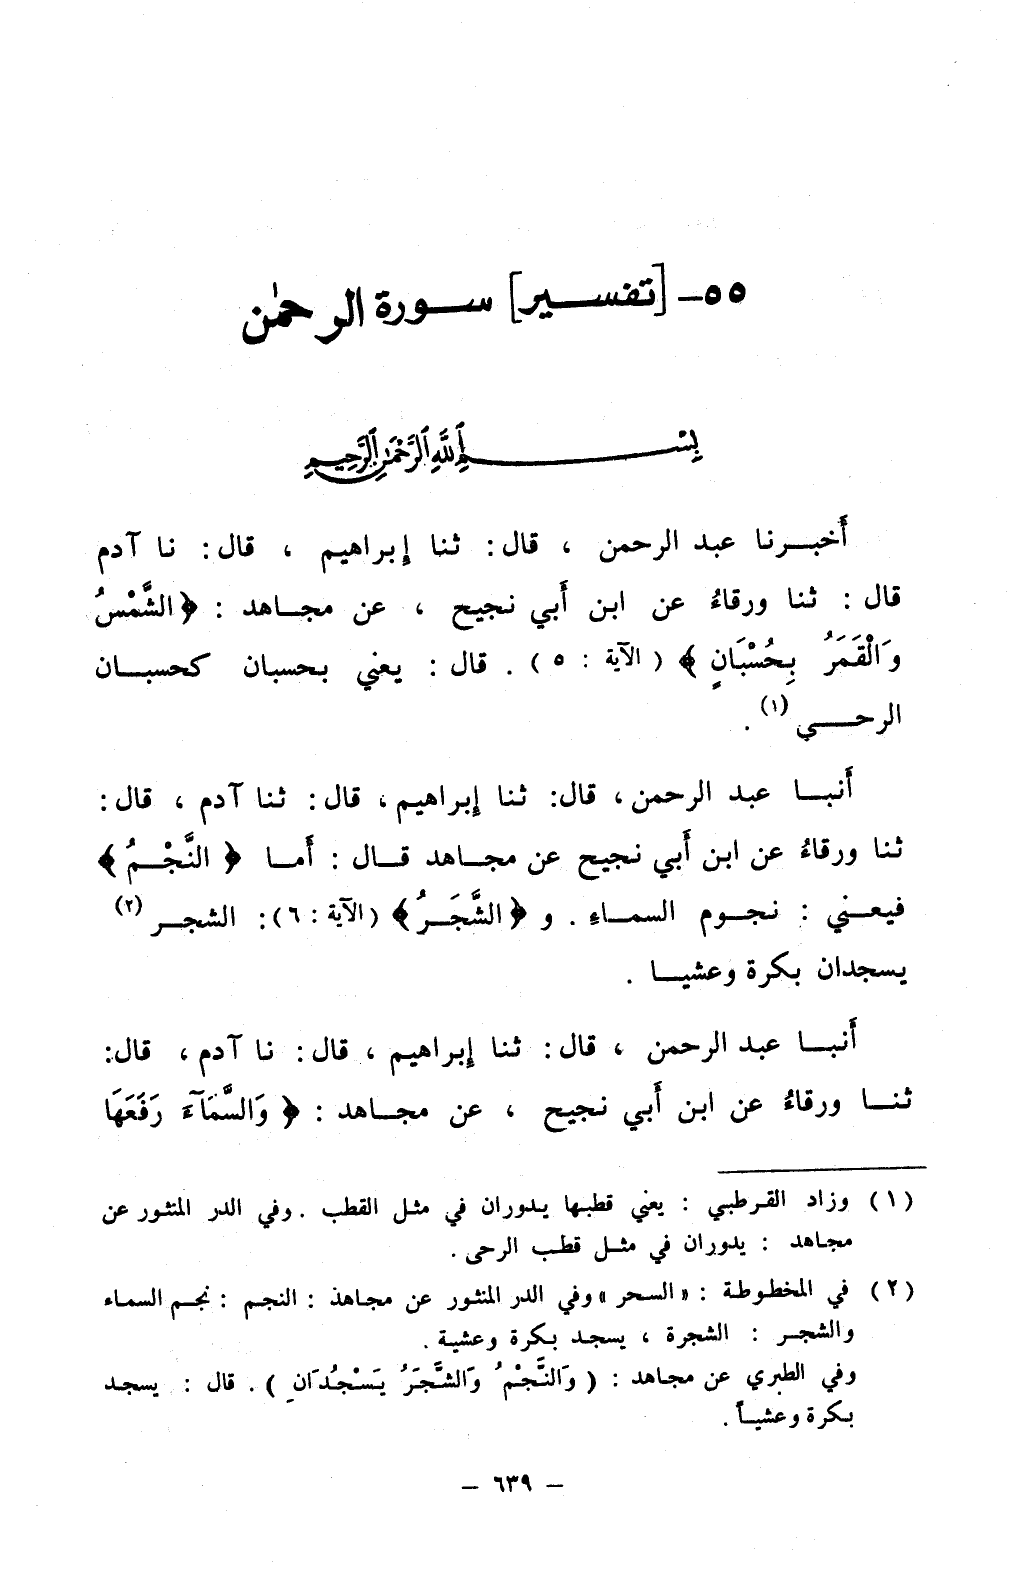 ٥٥- [تفسير] سورة الرحمٰن
بِسْمِ اللَّهِ الرَّحْمَٰنِ الرَّحِيمِ
أَخبرنا عبد الرحمن ، قال: ثنا إِبراهيم ، قال: نا آدم
قال : ثنا ورقاءُ عن ابن أَبي نجيح ، عن مجاهد : ﴿الشَّمْسُ
وَالْقَمَرُ بِحُسْبَانٍ﴾ (الآية : ٥) . قال : يعني بحسبان كحسبان
الرحي (١) .
أَنبا عبد الرحمن، قال: ثنا إِبراهيم، قال: ثنا آدم ، قال:
ثنا ورقاءُ عن ابن أَبي نجيح عن مجاهد قال : أَما ﴿ النَّجْمُ ﴾
فيعني : نجوم السماءِ . و ﴿الشَّجَرُ﴾ (الآية : ٦): الشجر (٢)
يسجدان بكرة وعشيا .
أَنبا عبد الرحمن ، قال: ثنا إِبراهيم ، قال: نا آدم ، قال:
ثنا ورقاءُ عن ابن أَبي نجيح ، عن مجاهد : ﴿ وَالسَّمَآءَ رَفَعَهَا
(١) وزاد القرطبي : يعني قطبها يدوران في مثل القطب . وفي الدر المنثور عن
مجاهد : يدوران في مثل قطب الرحى .
(٢) في المخطوطة : «السحر» وفي الدر المنثور عن مجاهذ : النجم : نجم السماء
والشجر : الشجرة ، يسجد بكرة وعشية .
وفي الطبري عن مجاهد : ( وَالنَّجْمُ وَالشَّجَرُ يَسْجُدَانِ ) . قال : يسجد
بكرة وعشياً .
– ٦٣٩ –